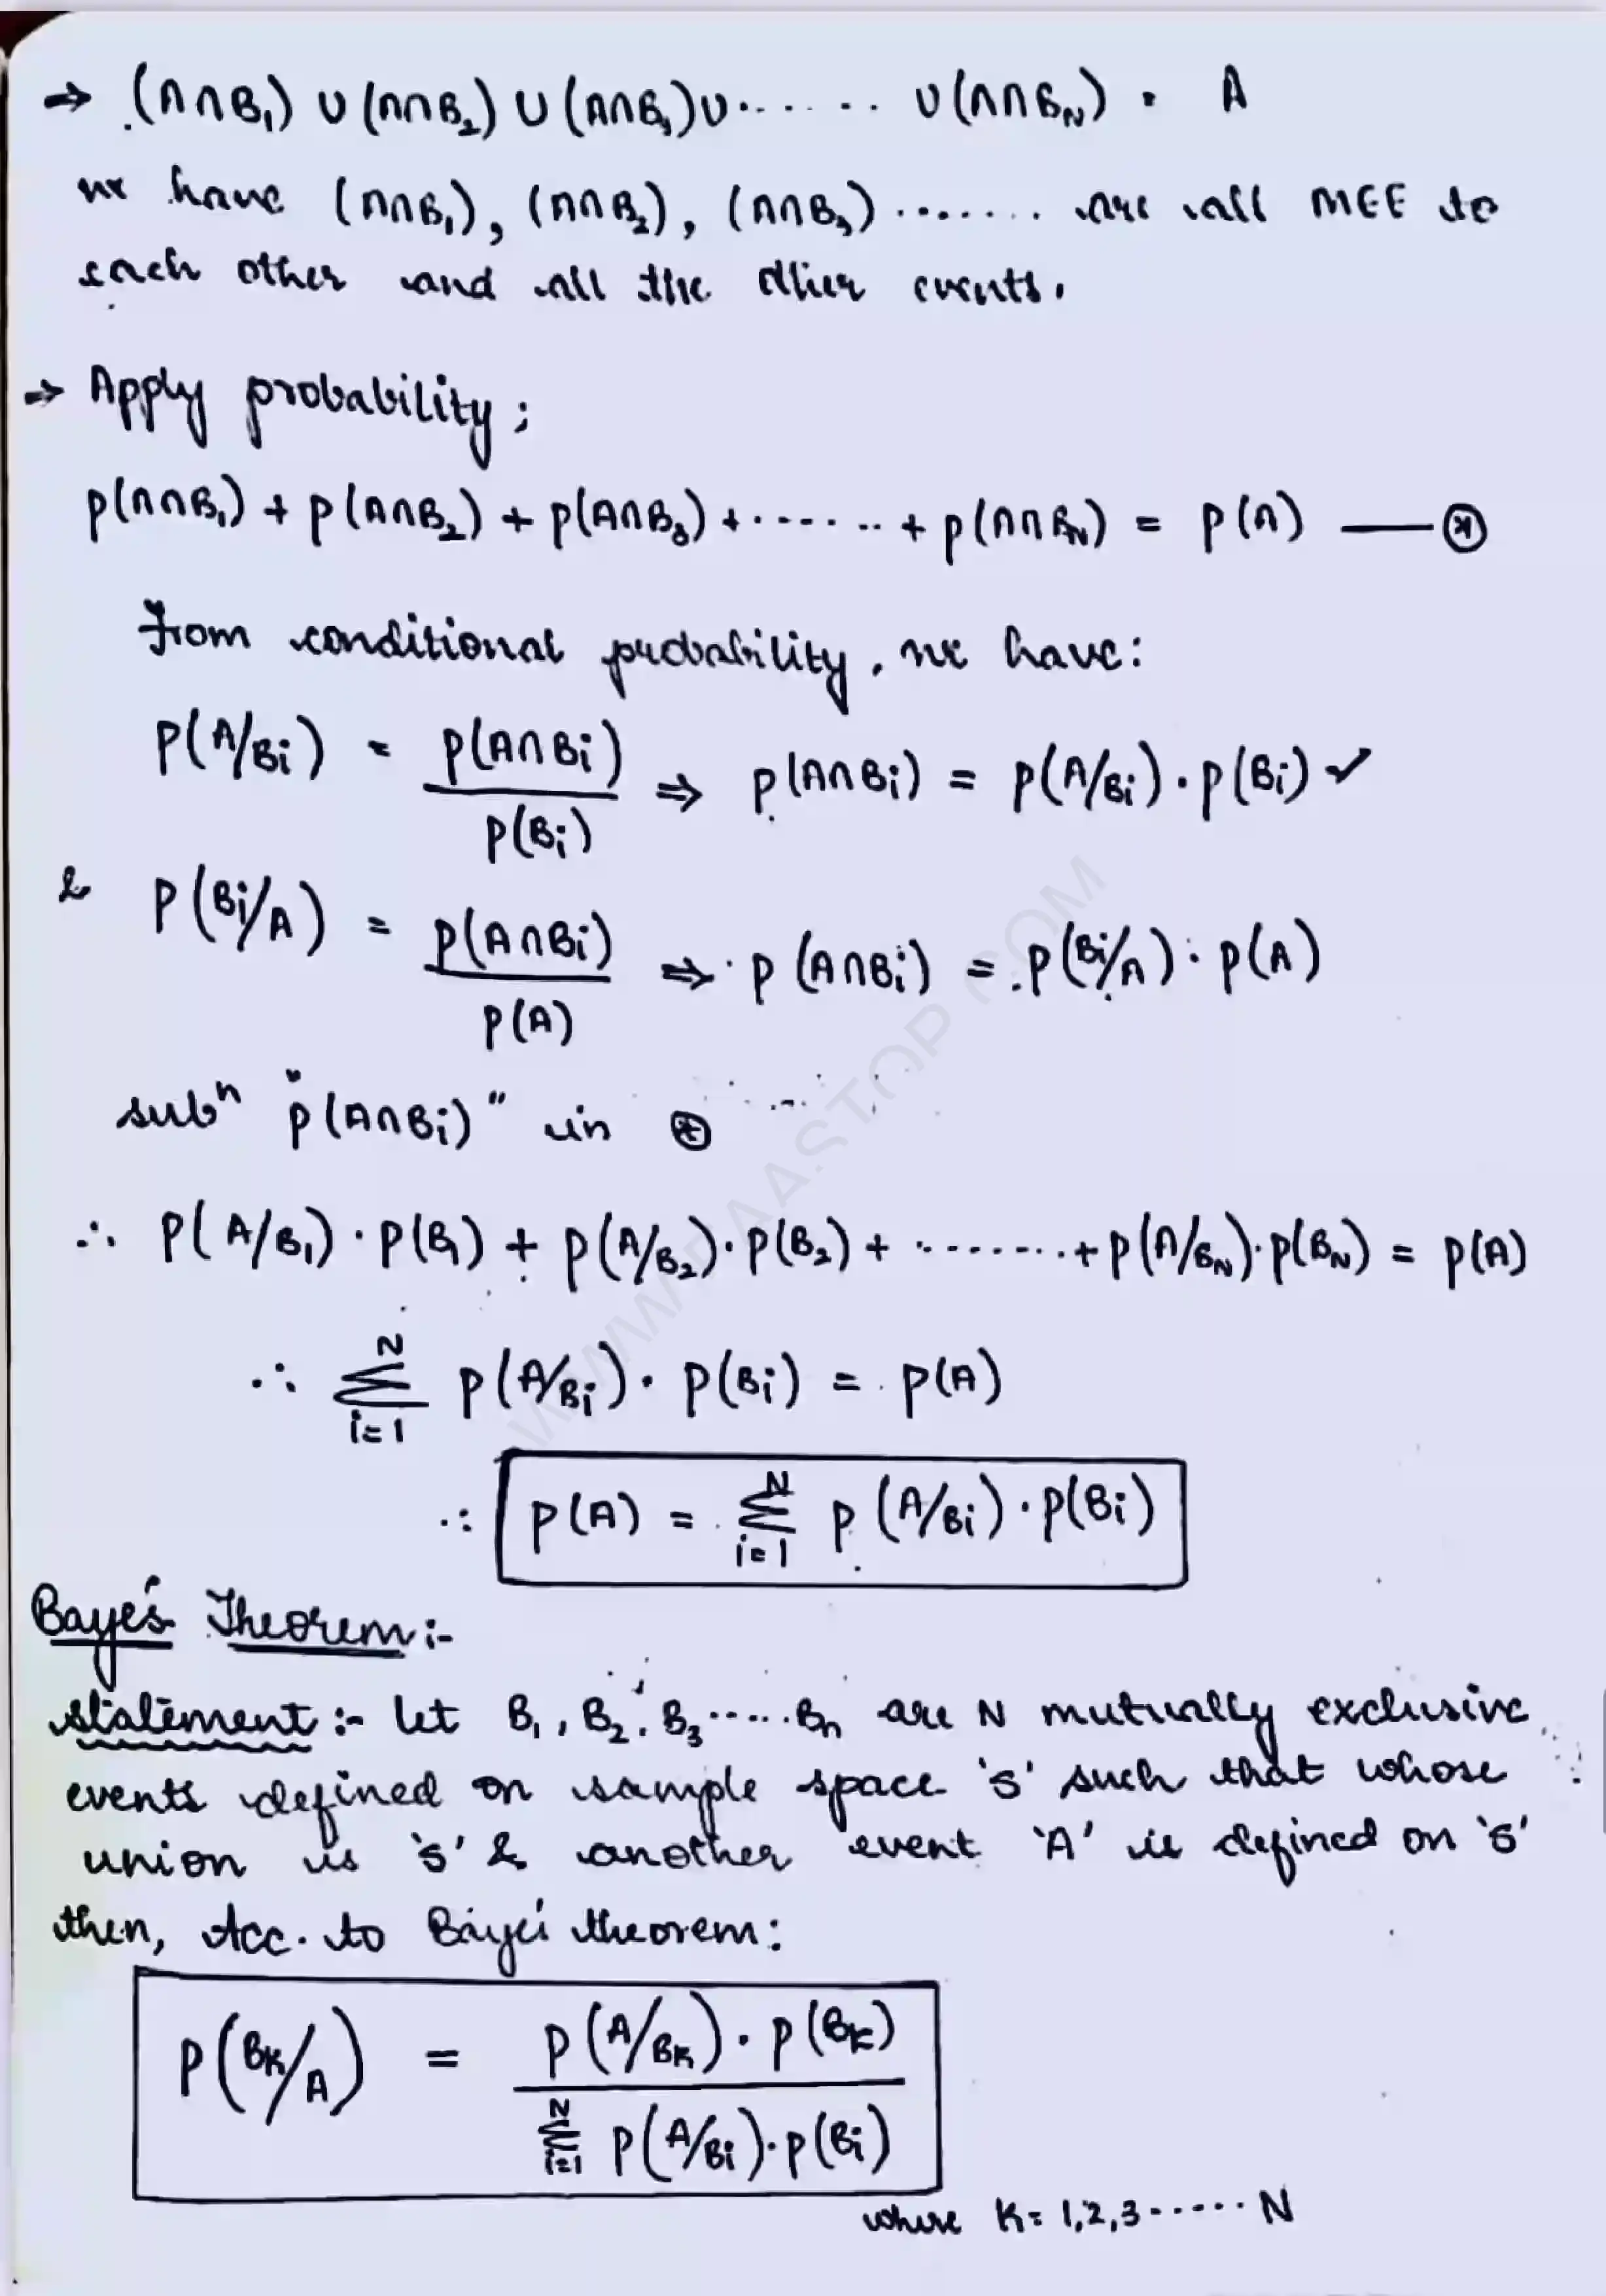 ⇒ (A∩B₁) ∪ (A∩B₂) ∪ (A∩B₃) ∪ ....... ∪ (A∩B_N) = A
we have (A∩B₁), (A∩B₂), (A∩B₃) ....... are all MEE to
each other and all the other events.
⇒ Apply probability;
p(A∩B₁) + p(A∩B₂) + p(A∩B₃) + ....... + p(A∩B_N) = p(A) — ⊛
From conditional probability, we have:
P(A/Bi) = p(A∩Bi) / p(Bi) ⇒ p(A∩Bi) = p(A/Bi) · p(Bi) ✓
& P(Bi/A) = p(A∩Bi) / p(A) ⇒ p(A∩Bi) = p(Bi/A) · p(A)
subⁿ "p(A∩Bi)" in ⊛
∴ P(A/B₁) · P(B₁) + p(A/B₂) · p(B₂) + ........ + p(A/B_N) · p(B_N) = p(A)
∴ N Σ i=1 p(A/Bi) · p(Bi) = p(A)
∴ p(A) = N Σ i=1 p(A/Bi) · p(Bi)
Baye's Theorem :-
Statement :- let B₁, B₂, B₃ ..... Bn are N mutually exclusive
events defined on sample space 's' such that whose
union is 's' & another event 'A' is defined on 's'
then, Acc. to Baye's theorem:
P(B_K/A) = p(A/B_K) · p(B_K) / N Σ i=1 p(A/Bi) · p(Bi)
where K = 1,2,3 ...... N